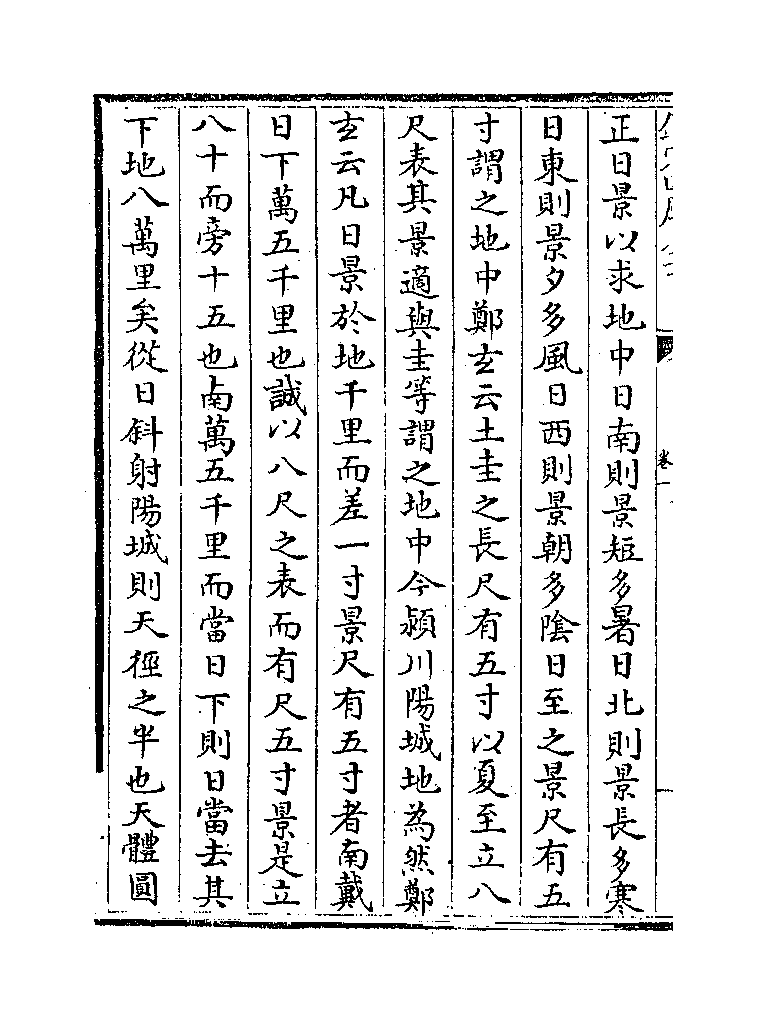 正日景以求地中日南則景短多暑日北則景長多寒
日東則景夕多風日西則景朝多陰日至之景尺有五
寸謂之地中鄭玄云土圭之長尺有五寸以夏至立八
尺表其景適與圭等謂之地中今潁川陽城地為然鄭
玄云凡日景於地千里而差一寸景尺有五寸者南戴
日下萬五千里也誠以八尺之表而有尺五寸景是立
八十而旁十五也南萬五千里而當日下則日當去其
下地八萬里矣從日斜射陽城則天徑之半也天體圓
卷一